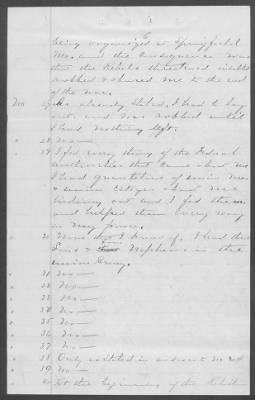 6
being organized at Springfield
Mo. and the consequence was
that the Rebels threatened insulted
robbed & abused me to the end
of the war.
27 As already stated, I had to lay
out and was robbed until
I had nothing left.
" 28 No—
" 29 I fed every thing of the Federal
authorities that came about me
I had quantities of union men
& union
out and I fed them
and helped them every way
in my power.
" 30 None I know of. I had
Sons & Nephews in the
union Army.
" 31 No—
" 32 No—
" 33 No—
" 34 No—
" 35 No—
" 36 No—
" 37 No—
" 38 Only as stated in answer to No
" 39 No—
" 40 At the beginning of the Rebellion